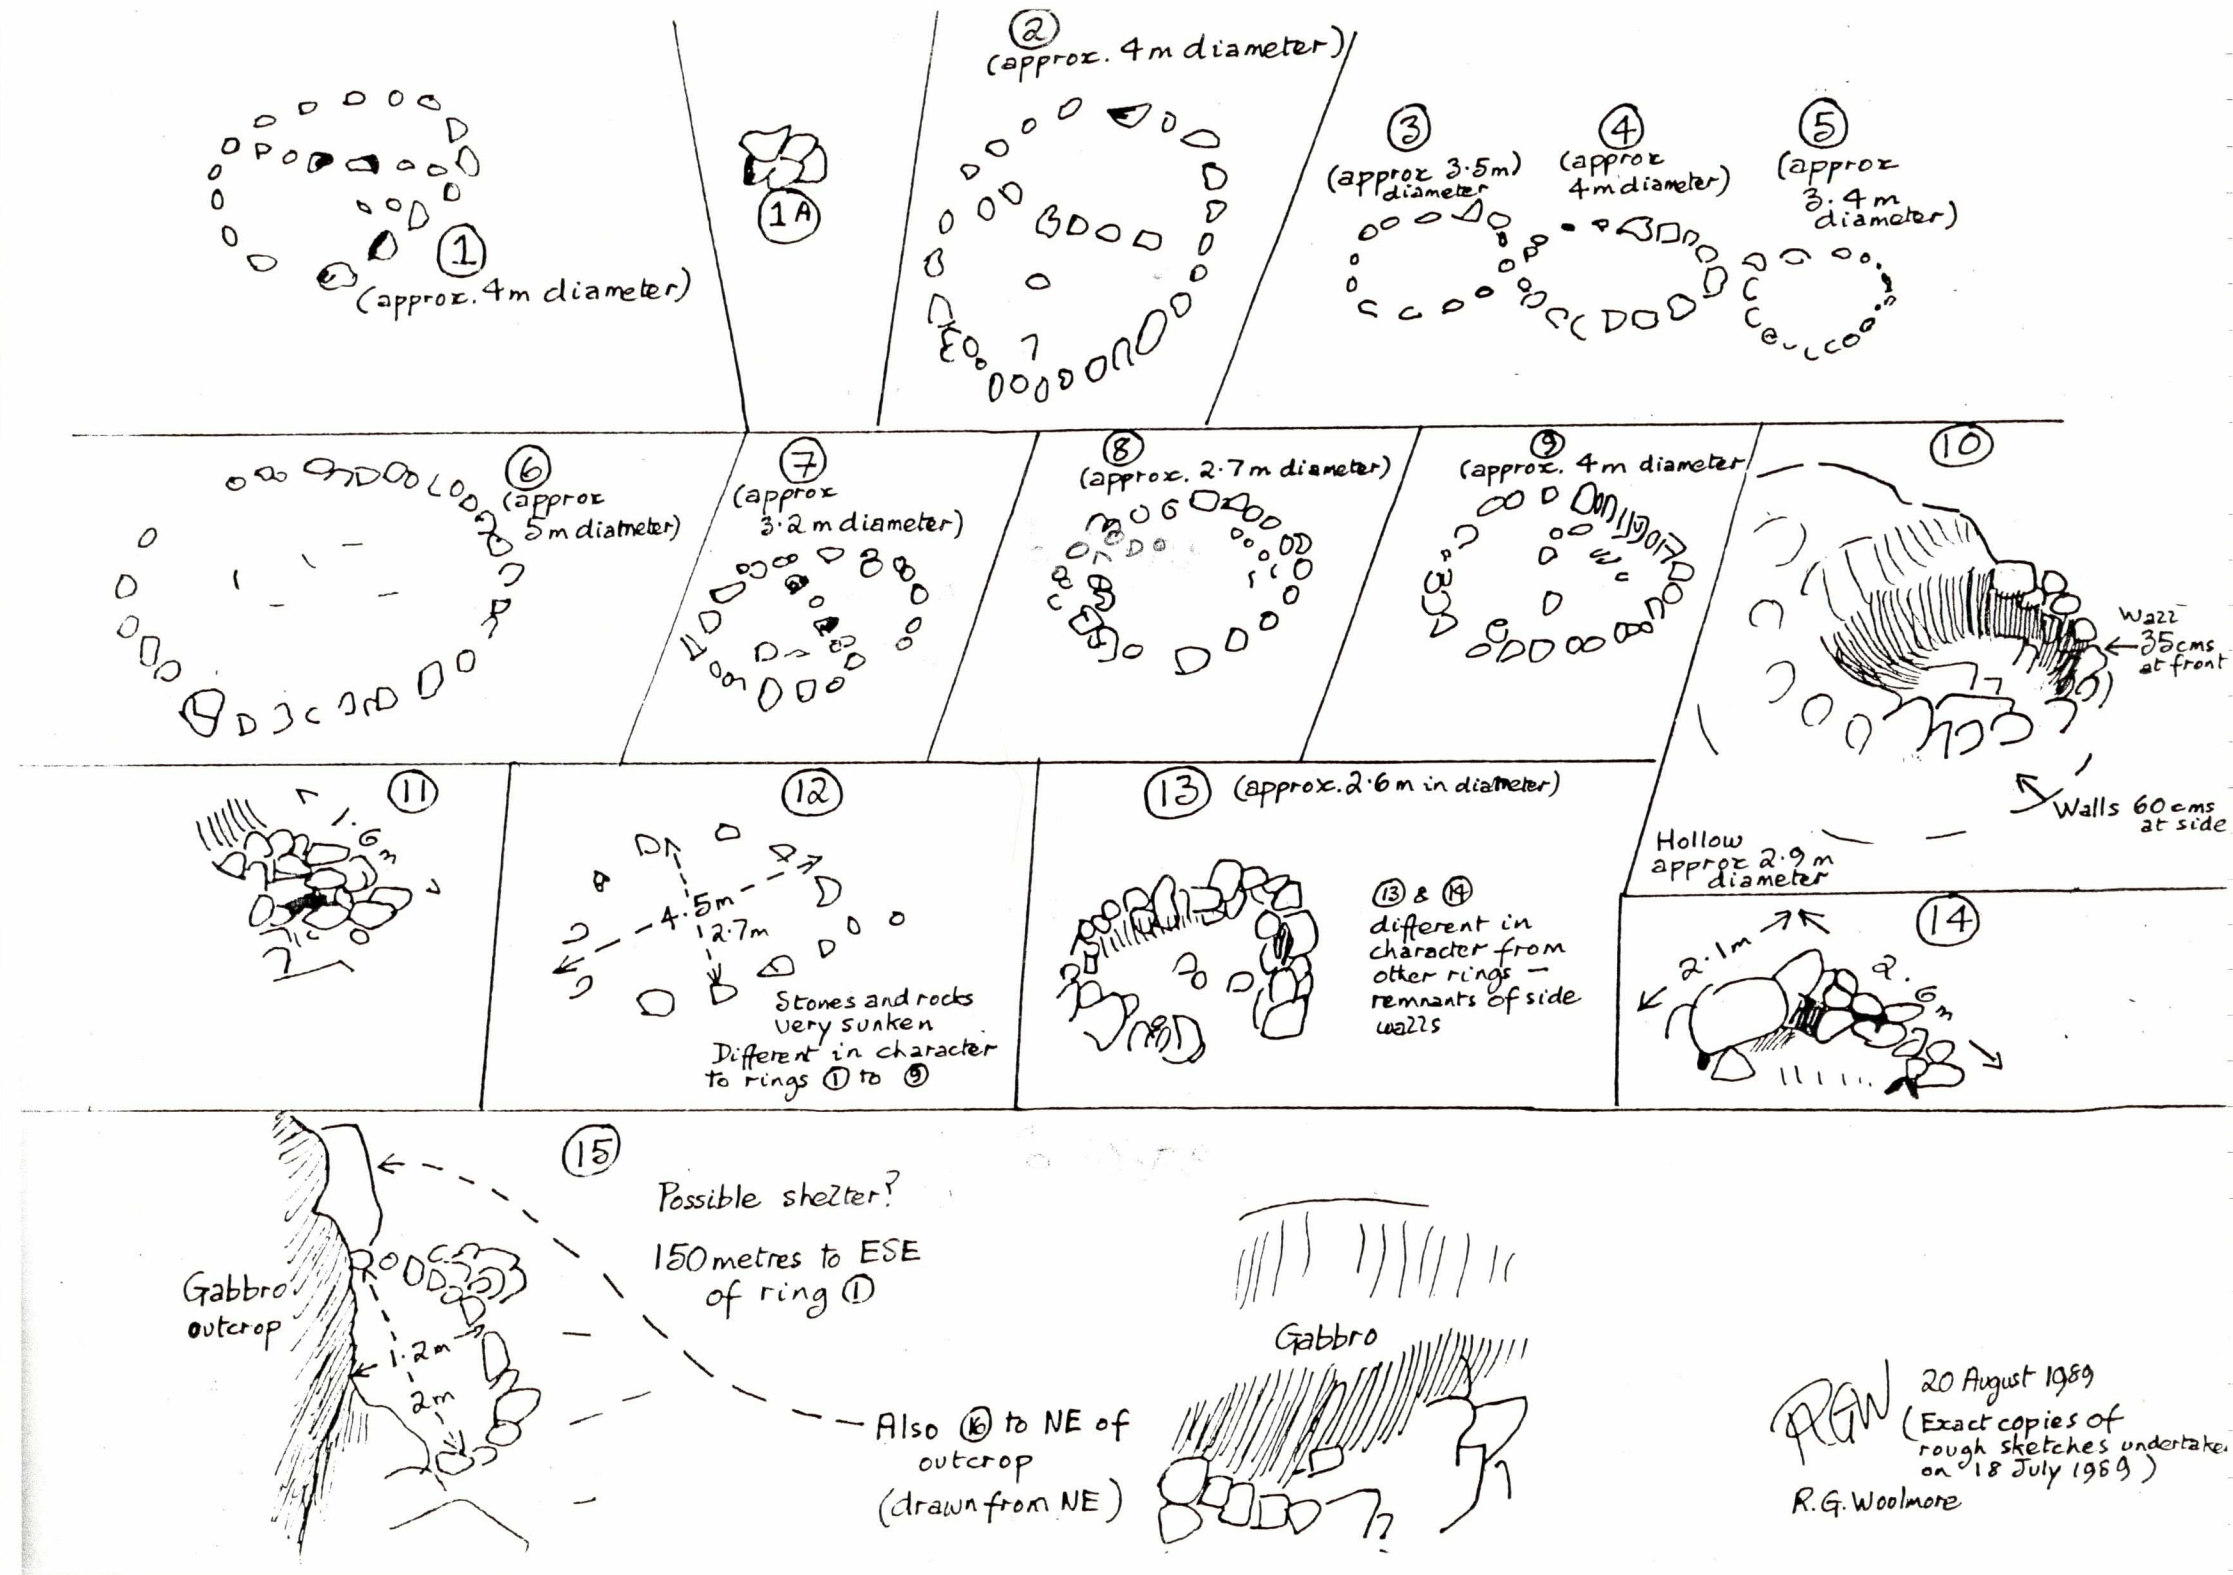 ①
(approx. 4m diameter)
①A
②
(approx. 4m diameter)
③
(approx 3.5m)
diameter
④
(approx
4m diameter)
⑤
(approx
3.4m
diameter)
⑥
(approx
5m diameter)
⑦
(approx
3.2m diameter)
⑧
(approx. 2.7m diameter)
⑨
(approx. 4m diameter
⑩
Wall
35cms
at front
Walls 60cms
at side
Hollow
approx 2.9m
diameter
⑪
1.6m
⑫
4.5m
2.7m
Stones and rocks
very sunken
Different in character
to rings ① to ⑨
⑬ (approx. 2.6m in diameter)
⑬ & ⑭
different in
character from
other rings –
remnants of side
walls
⑭
2.1m
2.6m
⑮
Possible shelter?
150 metres to ESE
of ring ①
Gabbro
outcrop
1.2m
2m
Also ⑯ to NE of
outcrop
(drawn from NE)
Gabbro
RGW
20 August 1989
(Exact copies of
rough sketches undertake
on 18 July 1989)
R.G. Woolmore